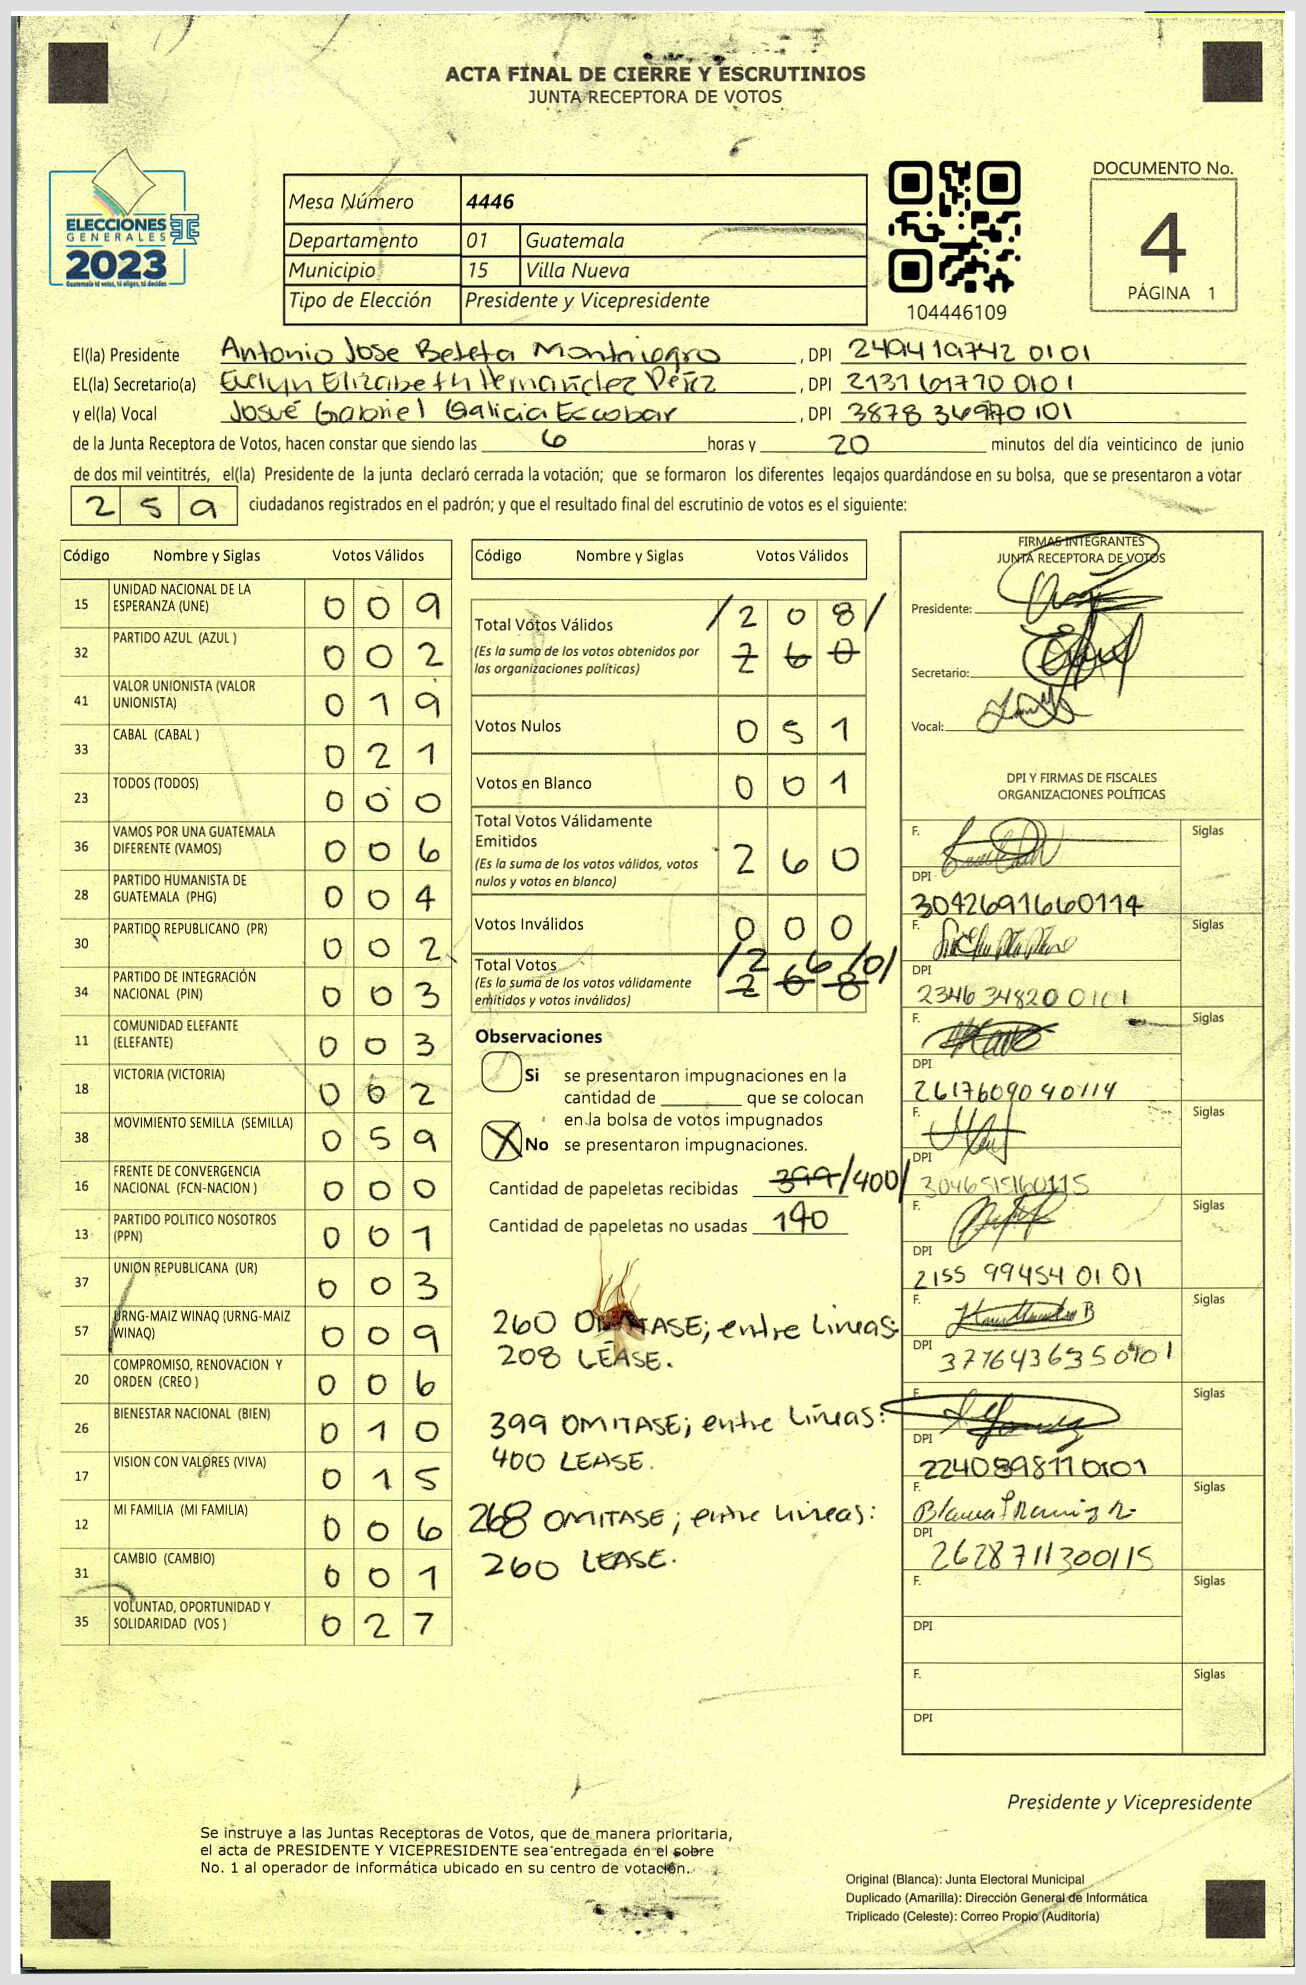 ACTA FINAL DE CIERRE Y ESCRUTINIOS
JUNTA RECEPTORA DE VOTOS
ELECCIONES
GENERALES
2023
Guatemala tú votas, tú eliges, tú decides
Mesa Número 4446
Departamento 01 Guatemala
Municipio 15 Villa Nueva
Tipo de Elección Presidente y Vicepresidente
104446109
DOCUMENTO No.
4
PÁGINA 1
El(la) Presidente Antonio Jose Beteta Montenegro , DPI 2494197420101
EL(la) Secretario(a) Evelyn Elizabeth Hernández Pérez , DPI 2131617700101
y el(la) Vocal Josué Gabriel Galicia Escobar , DPI
de la Junta Receptora de Votos, hacen constar que siendo las 6 horas y 20 minutos del día veinticinco de junio
de dos mil veintitrés, el(la) Presidente de la junta declaró cerrada la votación; que se formaron los diferentes legajos guardándose en su bolsa, que se presentaron a votar
259 ciudadanos registrados en el padrón; y que el resultado final del escrutinio de votos es el siguiente:
Código Nombre y Siglas Votos Válidos
15 UNIDAD NACIONAL DE LA ESPERANZA (UNE) 0 0 9
32 PARTIDO AZUL (AZUL ) 0 0 2
41 VALOR UNIONISTA (VALOR UNIONISTA) 0 1 9
33 CABAL (CABAL ) 0 2 1
23 TODOS (TODOS) 0 0 0
36 VAMOS POR UNA GUATEMALA DIFERENTE (VAMOS) 0 0 6
28 PARTIDO HUMANISTA DE GUATEMALA (PHG) 0 0 4
30 PARTIDO REPUBLICANO (PR) 0 0 2
34 PARTIDO DE INTEGRACIÓN NACIONAL (PIN) 0 0 3
11 COMUNIDAD ELEFANTE (ELEFANTE) 0 0 3
18 VICTORIA (VICTORIA) 0 0 2
38 MOVIMIENTO SEMILLA (SEMILLA) 0 5 9
16 FRENTE DE CONVERGENCIA NACIONAL (FCN-NACION ) 0 0 0
13 PARTIDO POLITICO NOSOTROS (PPN) 0 0 1
37 UNION REPUBLICANA (UR) 0 0 3
57 URNG-MAIZ WINAQ (URNG-MAIZ WINAQ) 0 0 9
20 COMPROMISO, RENOVACION Y ORDEN (CREO ) 0 0 6
26 BIENESTAR NACIONAL (BIEN) 0 1 0
17 VISION CON VALORES (VIVA) 0 1 5
12 MI FAMILIA (MI FAMILIA) 0 0 6
31 CAMBIO (CAMBIO) 0 0 1
35 VOLUNTAD, OPORTUNIDAD Y SOLIDARIDAD (VOS ) 0 2 7
Código Nombre y Siglas Votos Válidos
Total Votos Válidos / 2 0 8 /
(Es la suma de los votos obtenidos por las organizaciones políticas) 2 6 0
Votos Nulos 0 5 1
Votos en Blanco 0 0 1
Total Votos Válidamente Emitidos 2 6 0
(Es la suma de los votos válidos, votos nulos y votos en blanco)
Votos Inválidos 0 0 0
Total Votos / 2 6 0 /
(Es la suma de los votos válidamente emitidos y votos inválidos) 2 6 8
Observaciones
Si se presentaron impugnaciones en la
cantidad de ________ que se colocan
en la bolsa de votos impugnados
X No se presentaron impugnaciones.
Cantidad de papeletas recibidas 399 /400/
Cantidad de papeletas no usadas 140
260 OMITASE; entre Lineas:
208 LÉASE.
399 OMITASE; entre Líneas:
400 LEASE.
268 OMITASE; entre Lineas:
260 LEASE.
FIRMAS INTEGRANTES
JUNTA RECEPTORA DE VOTOS
Presidente:
Secretario:
Vocal:
DPI Y FIRMAS DE FISCALES
ORGANIZACIONES POLÍTICAS
F. Siglas
DPI
3042691660114
F. Siglas
DPI
2346348200101
F. Siglas
DPI
2617609040114
F. Siglas
DPI
3046515160115
F. Siglas
DPI
2155 99454 0101
F. Siglas
DPI 3776436350101
F. Siglas
DPI
2240898110101
F. Siglas
DPI
2628711300115
F. Siglas
DPI
F. Siglas
DPI
Presidente y Vicepresidente
Se instruye a las Juntas Receptoras de Votos, que de manera prioritaria,
el acta de PRESIDENTE Y VICEPRESIDENTE sea entregada en el sobre
No. 1 al operador de informática ubicado en su centro de votación.
Original (Blanca): Junta Electoral Municipal
Duplicado (Amarilla): Dirección General de Informática
Triplicado (Celeste): Correo Propio (Auditoría)